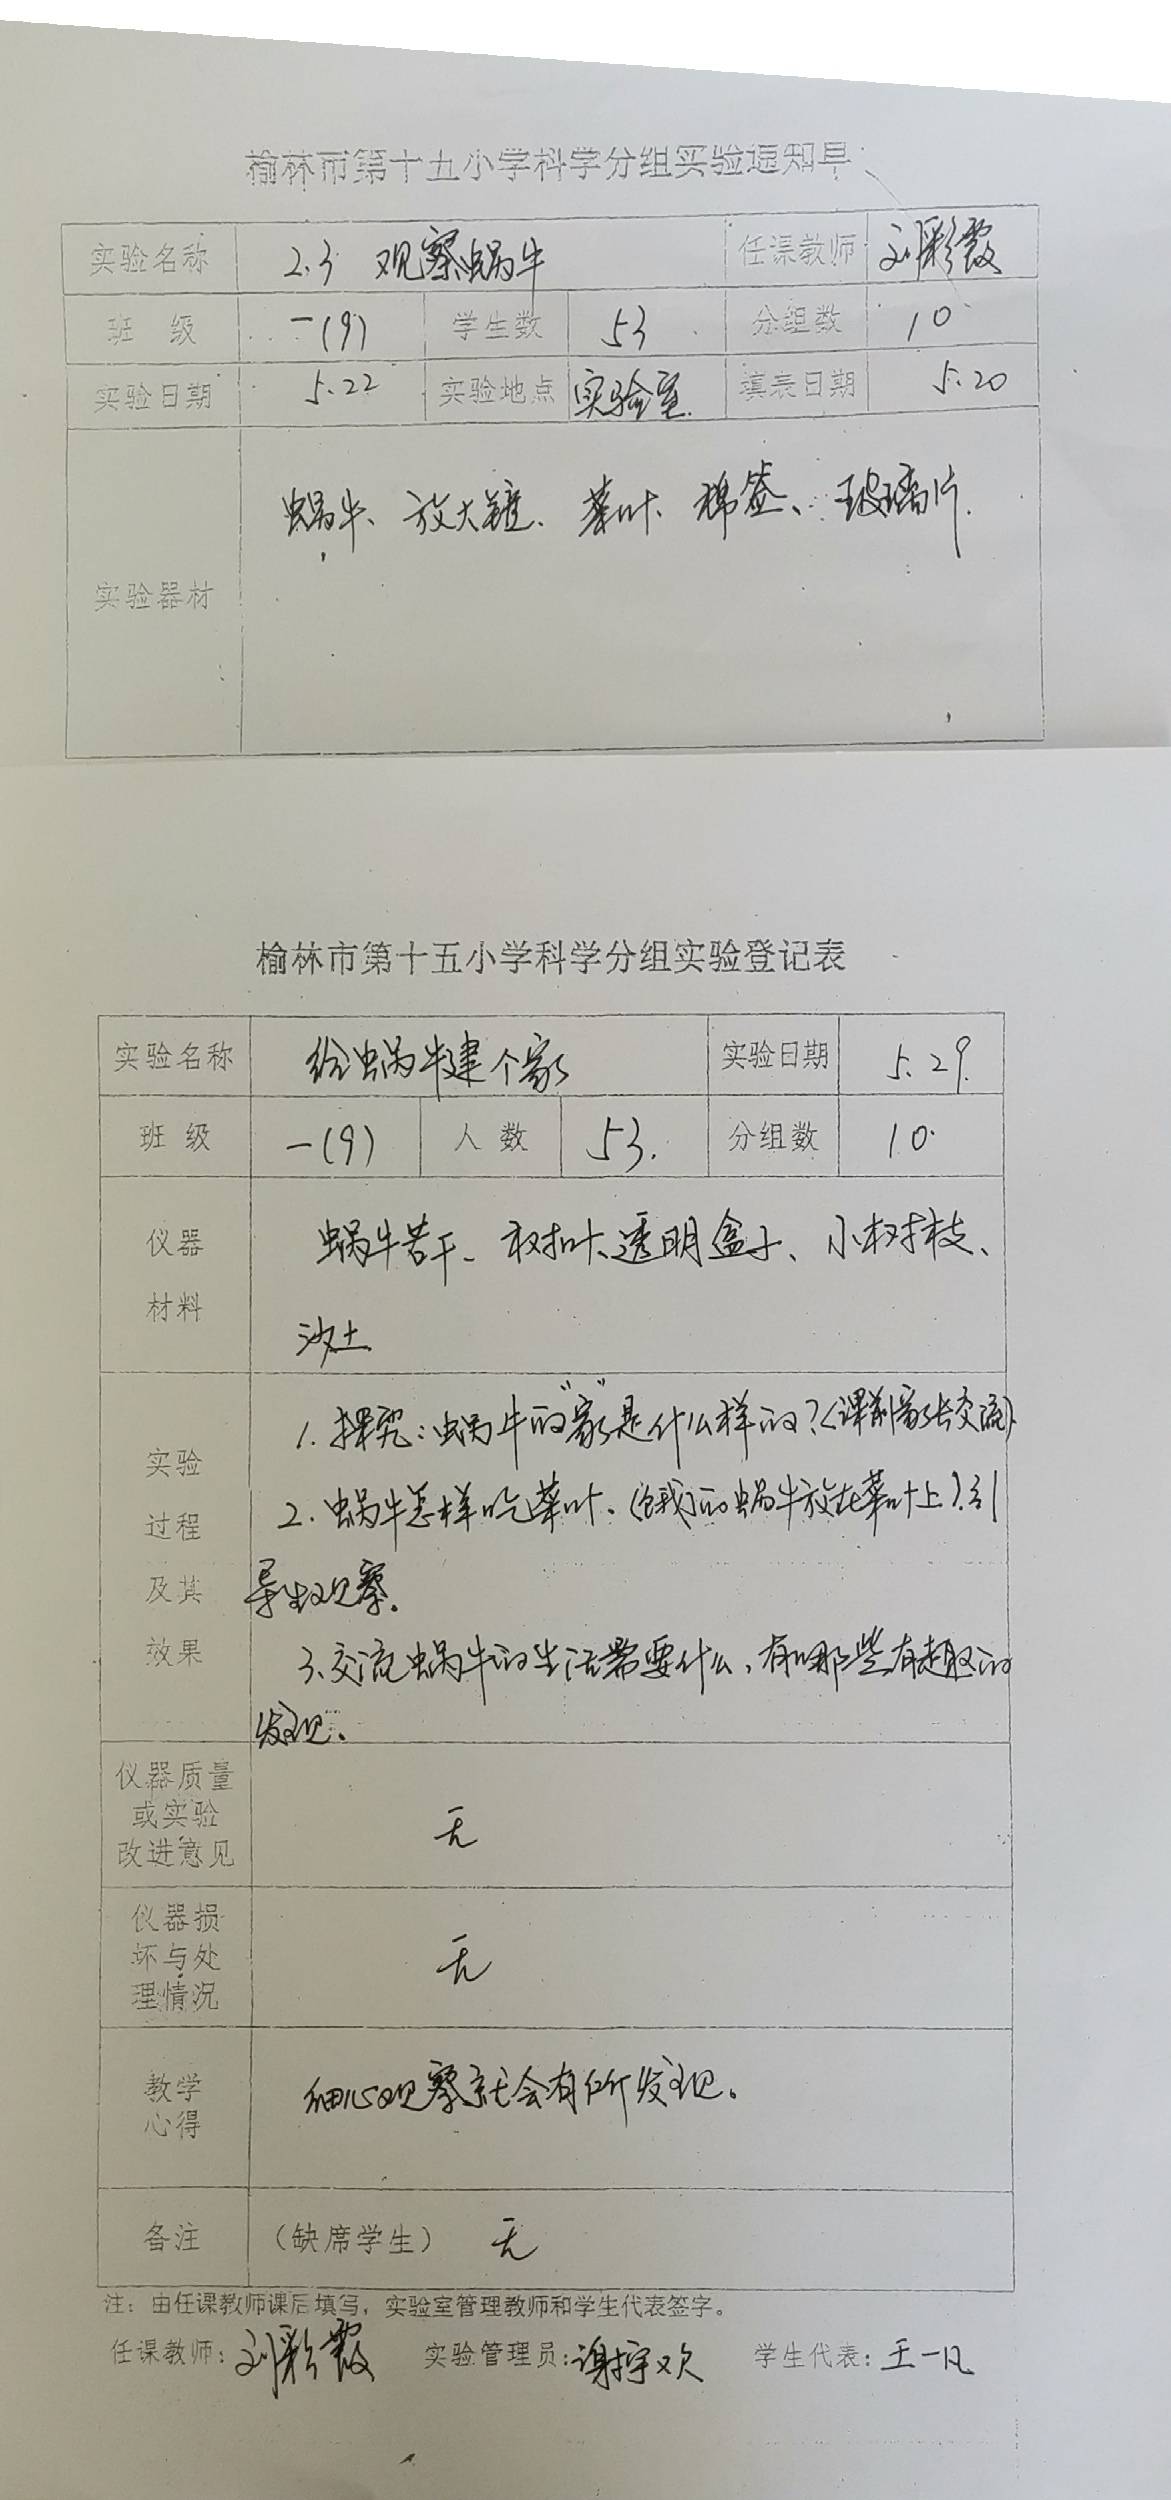 榆林市第十五小学科学分组实验通知单
实验名称 2.3 观察蜗牛 任课教师 刘彩霞
班 级 一(9) 学生数 53 分组数 10
实验日期 5.22 实验地点 实验室. 填表日期 5.20
实验器材 蜗牛、放大镜、菜叶、棉签、玻璃片.
榆林市第十五小学科学分组实验登记表
实验名称 给蜗牛建个家 实验日期 5.29.
班 级 一(9) 人 数 53. 分组数 10.
仪器 蜗牛若干、树叶、透明盒子、小树枝、
材料 沙土.
实验 1.探究:蜗牛的"家"是什么样的?(课前家长交流)
过程 2.蜗牛怎样吃菜叶.(饿的蜗牛放在菜叶上).引
及其 导生观察.
效果 3.交流蜗牛的生活需要什么,有哪些有趣的
发现.
仪器质量
或实验 无
改进意见
仪器损
坏与处 无
理情况
教学 细心观察就会有所发现。
心得
备注 (缺席学生) 无
注:由任课教师课后填写,实验室管理教师和学生代表签字。
任课教师:刘彩霞 实验管理员:谢宇欢 学生代表:王一凡